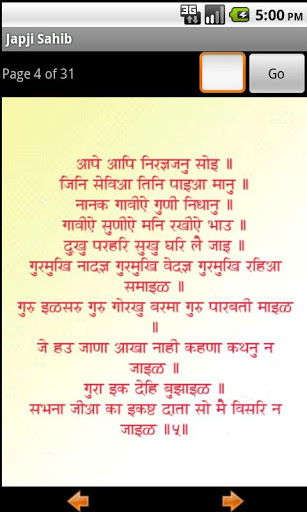 3G 5:00 PM
Japji Sahib
Page 4 of 31
Go
आपे आपि निरज्ञजनु सोइ ॥
जिनि सेविआ तिनि पाइआ मानु ॥
नानक गावीऐ गुणी निधानु ॥
गावीऐ सुणीऐ मनि रखीऐ भाउ ॥
दुखु परहरि सुखु घरि लै जाइ ॥
गुरमुखि नादज्ञ गुरमुखि वेदज्ञ गुरमुखि रहिआ
समाइळ ॥
गुरु इळसरु गुरु गोरखु बरमा गुरु पारबती माइळ
॥
जे हउ जाणा आखा नाही कहणा कथनु न
जाइळ ॥
गुरा इक देहि बुझाइळ ॥
सभना जीआ का इकष्ट दाता सो मै विसरि न
जाइळ ॥५॥